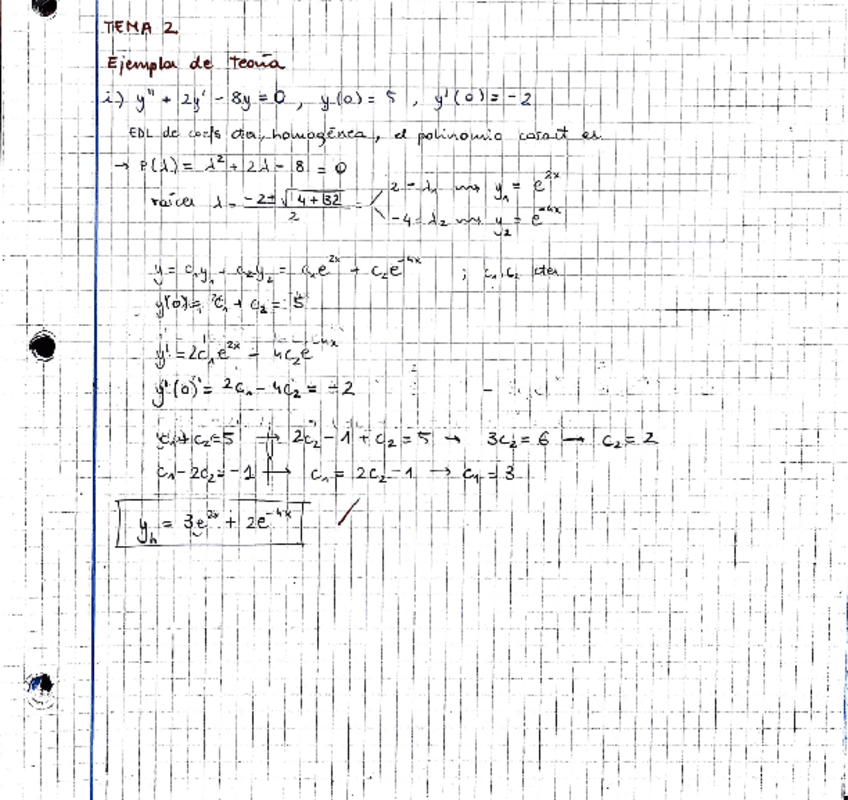 TEMA 2
Ejemplos de teoría
i) y'' + 2y' - 8y = 0 , y(0) = 5 , y'(0) = -2
EDL de coefs ctes, homogénea, el polinomio caract es
→ P(λ) = λ² + 2λ - 8 = 0
raíces λ = (-2 ± √(4+32))/2 =
2 = λ₁ ⇝ y₁ = e^{2x}
-4 = λ₂ ⇝ y₂ = e^{-4x}
y = c₁y₁ + c₂y₂ = c₁e^{2x} + c₂e^{-4x} ; c₁, c₂ ctes
y(0) = c₁ + c₂ = 5
y' = 2c₁e^{2x} - 4c₂e^{-4x}
y'(0) = 2c₁ - 4c₂ = -2
c₁ + c₂ = 5 → 2c₂ - 1 + c₂ = 5 → 3c₂ = 6 → c₂ = 2
c₁ - 2c₂ = -1 → c₁ = 2c₂ - 1 → c₁ = 3
y_h = 3e^{2x} + 2e^{-4x}